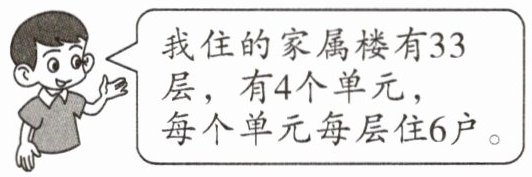 我住的家属楼有33
层，有4个单元，
每个单元每层住6户。